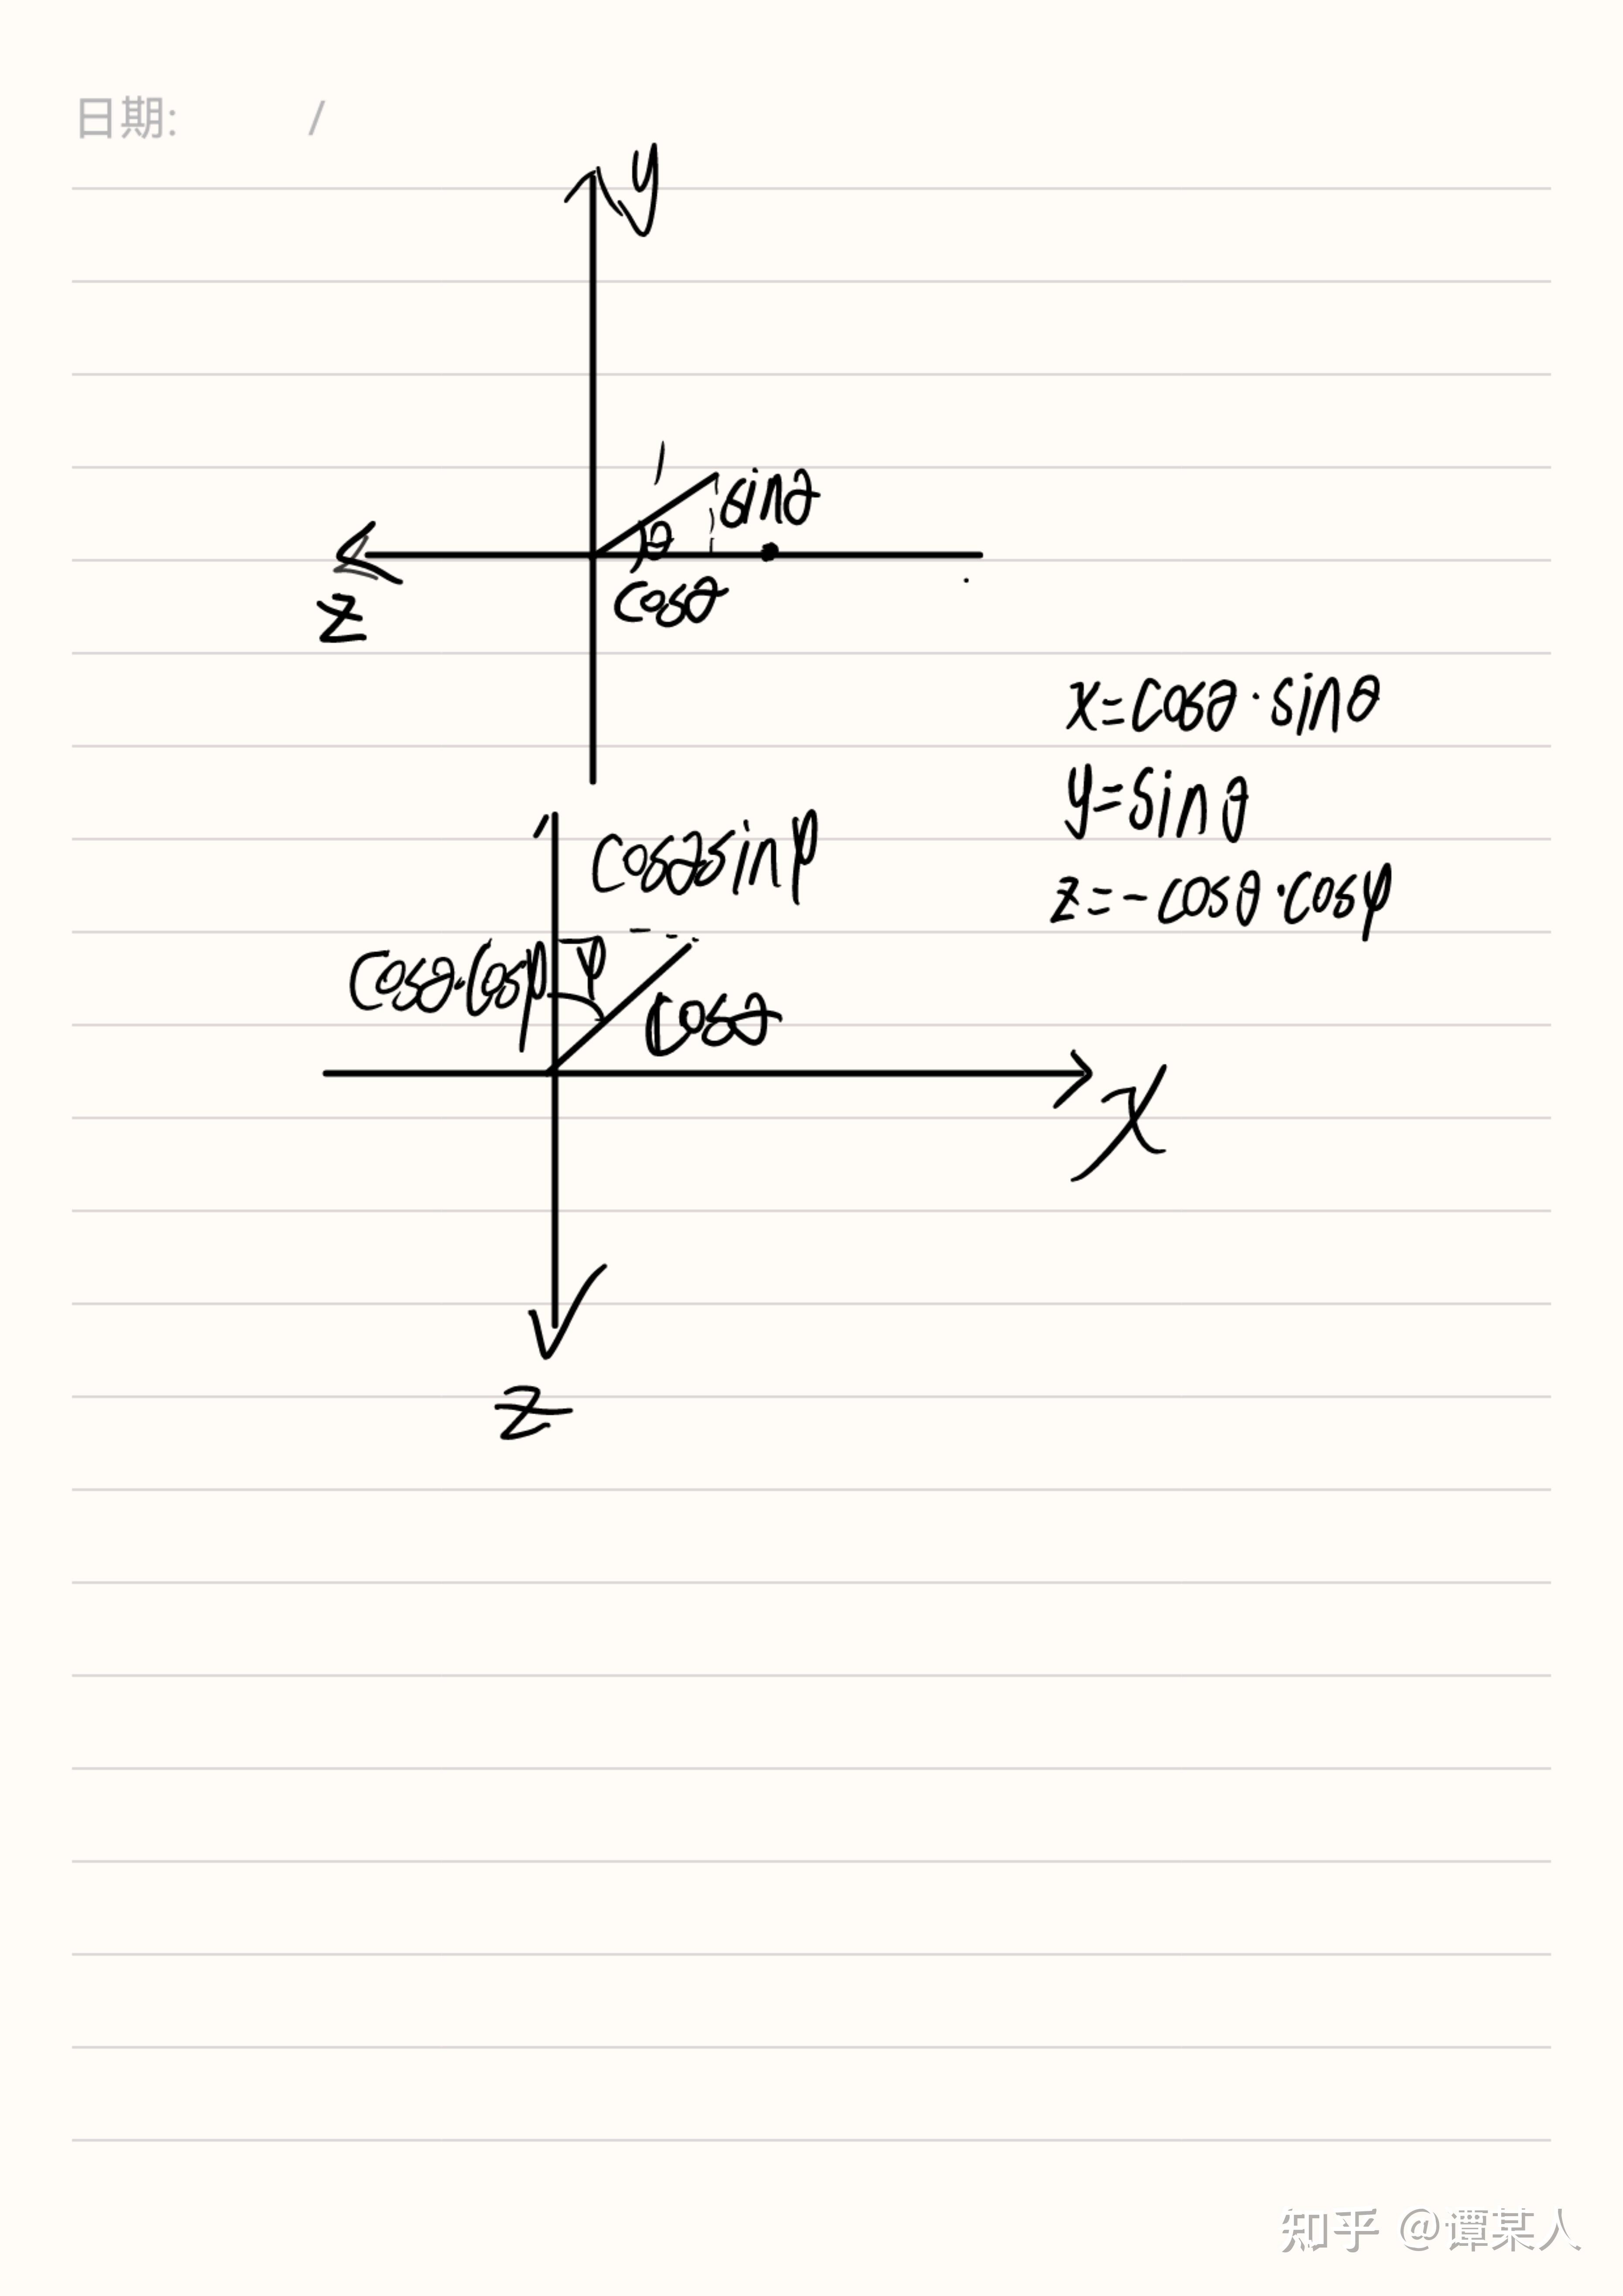 日期: /
y
1
sinθ
θ
cosθ
z
x=cosθ·sinθ
y=sinθ
z=-cosθ·cosφ
cosθsinφ
cosθ·cosφ
φ
cosθ
x
z
知乎 @谭某人